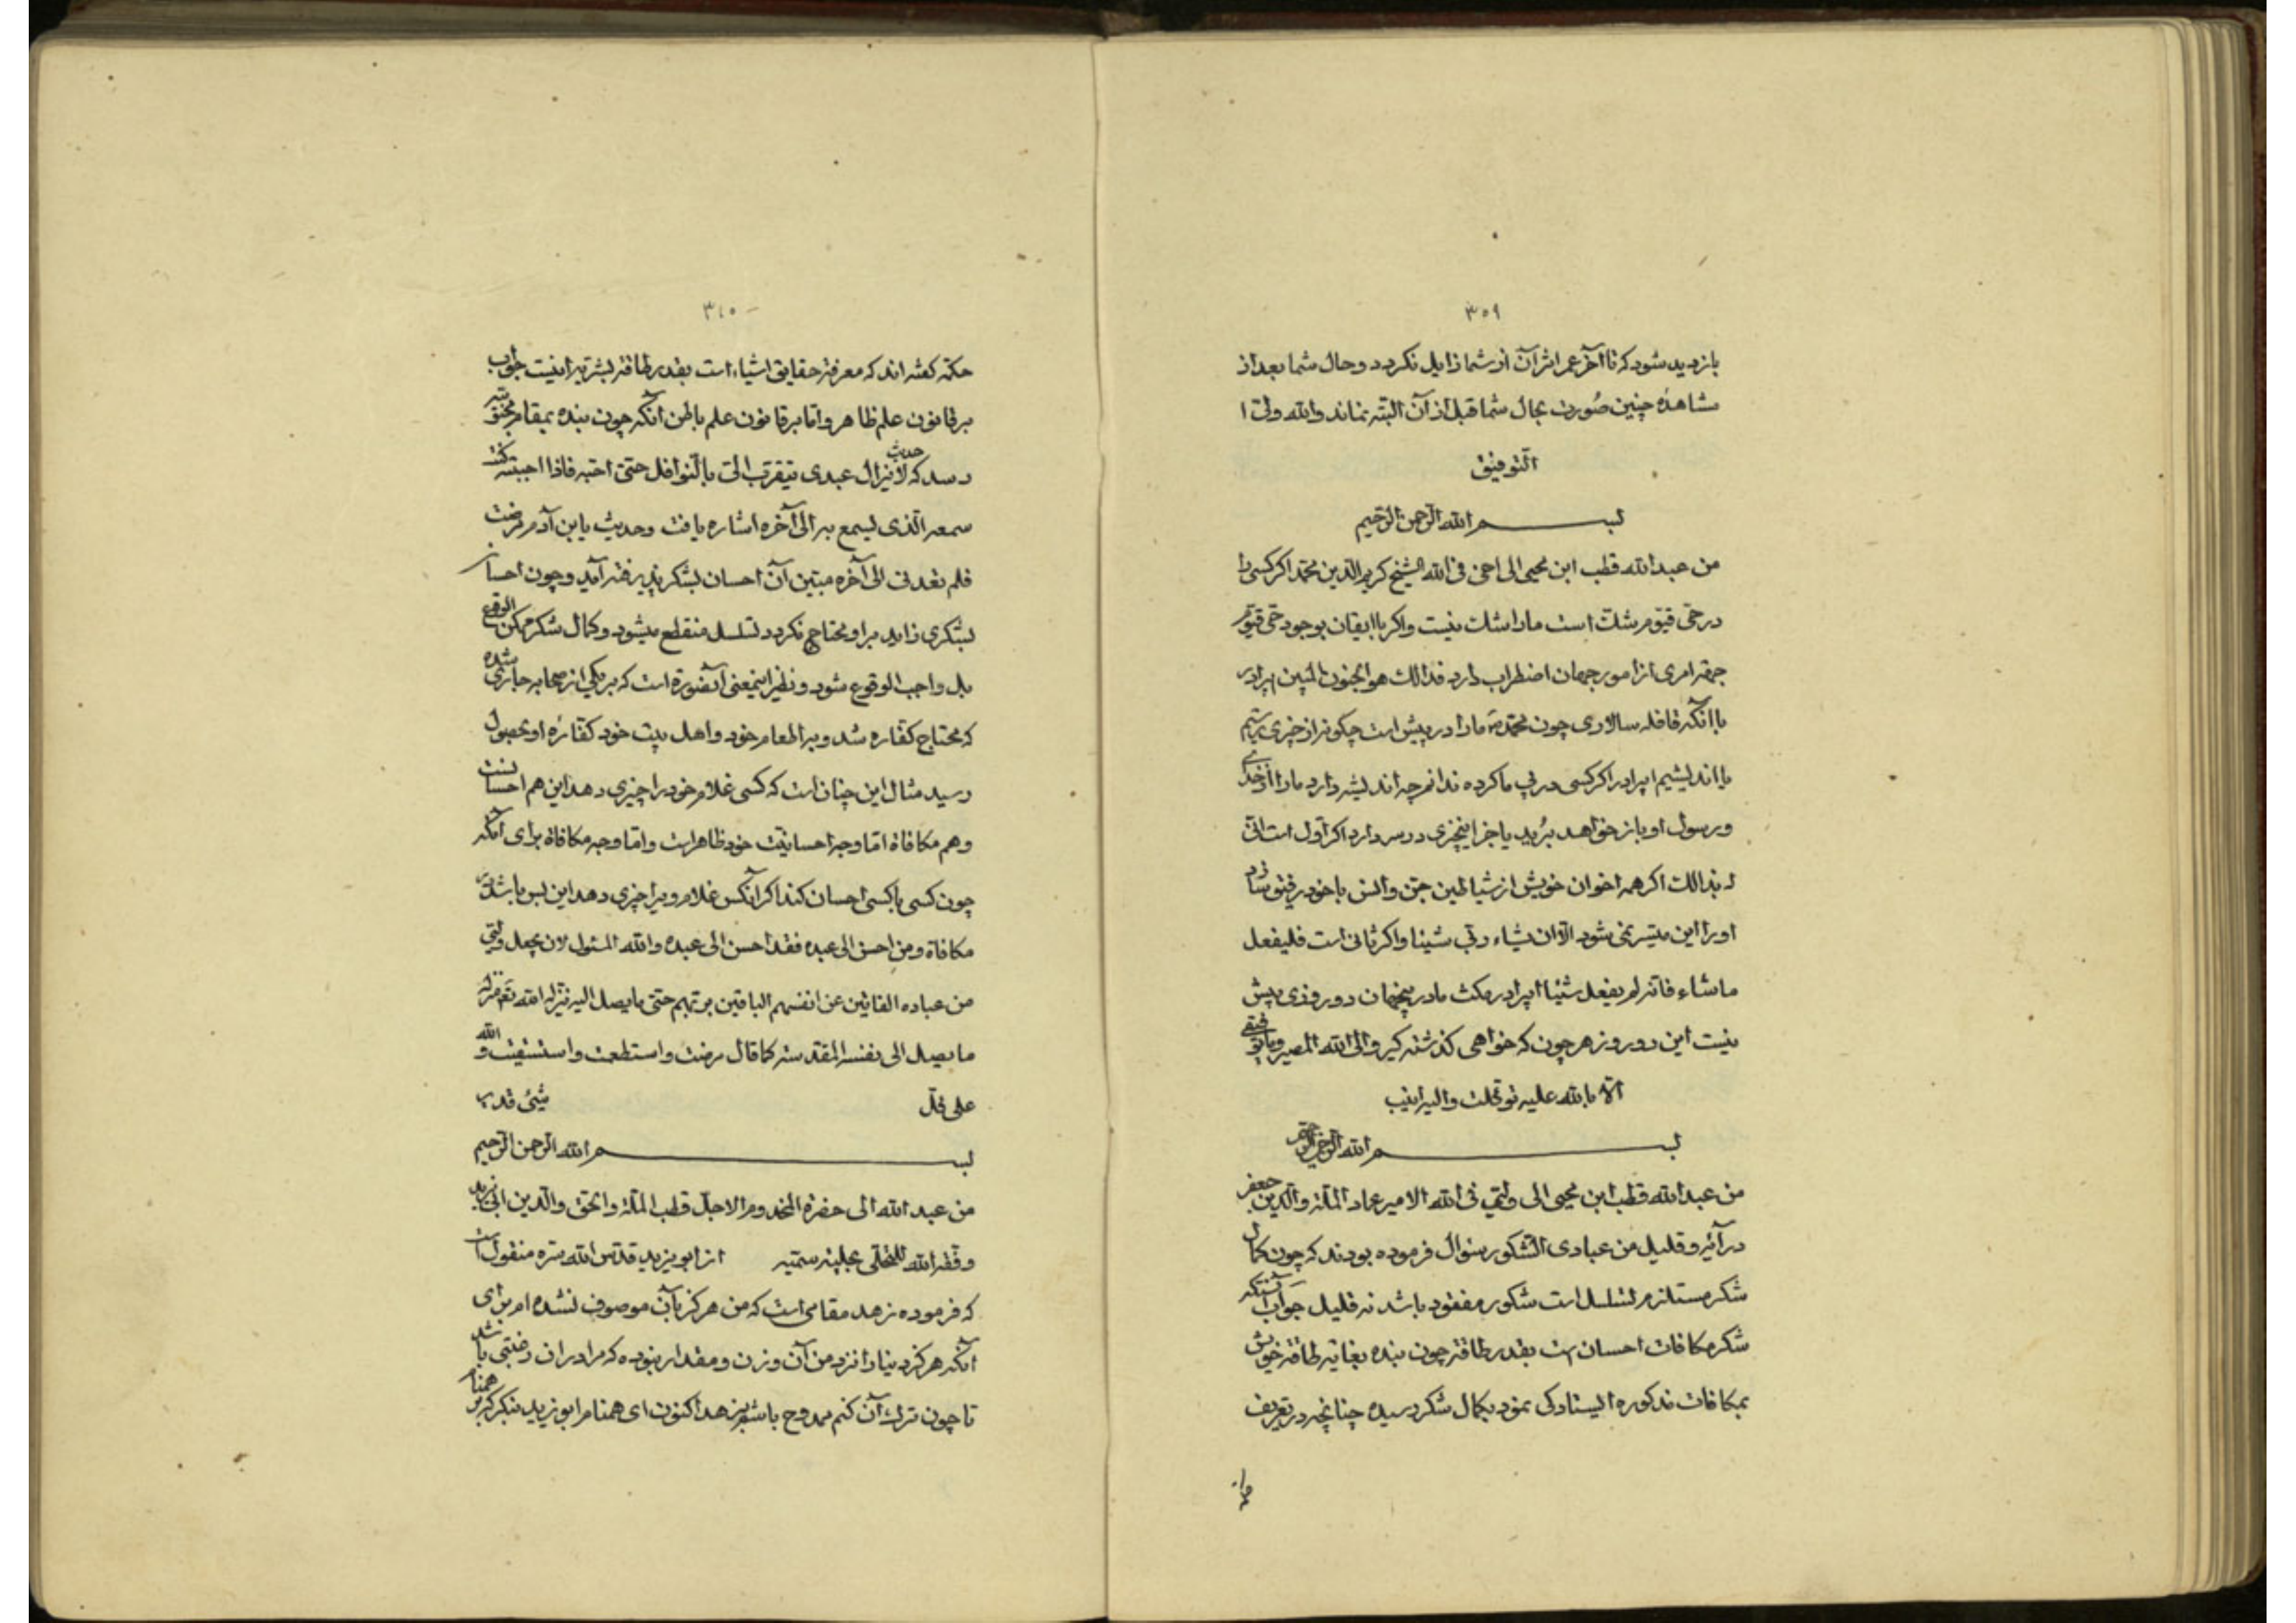 ۳۵۹
بازدید شود که تا آخر عمر اثر آن از شما زایل نکردد و حال شما بعد از
مشاهدهٔ چنین صُورت بحال شما قبل از آن البته نماند والله ولیّ ا
التّوفیق
بسم الله الرّحمن الرّحیم
من عبدالله قطب ابن محیی الی اخی فی الله الشیخ کریم الدّین محمّد اکر کسی را
در حیّ قیّوم شکّ است مارا شک نیست و اکر با ایقان بوجود حیّ قیّوم
جهة امری از امور جهان اضطراب دارد فذالک هو الجنون المبین ایبرادر
با آنکه قافله سالاری چون محمّد ص مارا در پیش است چکونه از چیزی بترسیم
یا اندیشیم ایبرادر اکر کسی در پی ما کرده ندانم چه اندیشه دارد مارا از خدای
و رسول او باز خواهد بُرید یا جز اینچیزی در سر دارد اکر اوّل است انّی
له بذالک اکر همه اخوان خویش از شیاطین جن و انس با خود رفیق سازد
اورا این میسّر نمی شود الّا ان یشاء ربّی شیئا و اکر ثانی است فلیفعل
ما شاء فانّه لم یفعل شیئا ایبرادر مکث ما در اینجهان دو روزی بیش
نیست این دو روز هر چون که خواهی کذشته کیر و الی الله المصیر و ما توفیقی
الّا بالله علیه توکلت و الیه انیب
بسم الله الرّحمن الرّحیم
من عبدالله قطب ابن محیی الی ولیّی فی الله الامیر عماد الملّة والدّین جعفر
در آیهٔ و قلیل من عبادی الشّکور سئوال فرموده بودند که چون کمال
شکر مستلزم تسلسل است شکور مفقود باشد نه قلیل جواب آنستکه
شکر مکافات احسان است بقدر طاقة چون بنده بغایة طاقة خویش
بمکافات مذکوره ایستادکی نمود بکمال شکر رسیده چنانچه در تعریف
۳۶۰
حکمة کفته اند که معرفة حقایق اشیاء است بقدر طاقة بشریّه اینست جواب
بر قانون علم ظاهر و امّا بر قانون علم باطن آنکه چون بنده بمقام محبوبیّة
رسد که حدیث لا یزال عبدی یتقرّب الیّ بالنّوافل حتّی احبّه فاذا احببته کنت
سمعه الّذی یسمع به الی آخره اشاره یافت و حدیث یا بن آدم مرضت
فلم تعدنی الی آخره مبیّن آن احسان بشکر پذیرفته آید و چون احسان
بشکری زاید بر او محتاج نکردد تسلسل منقطع میشود و کمال شکر ممکن الوقوع
بل واجب الوقوع شود و نظیر اینمعنی آنصورة است که بر یکی از صحابه جاری شده
که محتاج کفّاره شد و به اطعام خود و اهل بیت خود کفّارهٔ او بحصول
رسید مثال این چنان است که کسی غلام خود را چیزی دهد این هم احسانست
و هم مکافاة امّا وجه احسانیّت خود ظاهر است و امّا وجه مکافاة برای آنکه
چون کسی با کسی احسان کند اکر آنکس غلام ویرا چیزی دهد این بس باشد در
مکافاة و من احسن الی عبده فقد احسن الی عبده والله المسئول لان یجعل ولیّی
من عباده الفانین عن انفسهم الباقین بربّهم حتّی ما یصل الیه نزّله الله تع منزلة
ما یصل الی نفسه المقدسة کما قال مرضت و استطعمت و استسقیت و الله
علی کلّ شیئ قدیر
بسم الله الرّحمن الرّحیم
من عبدالله الی حضرة المخدوم الاجلّ قطب الملّة والحق والدّین ابی یزید
وفّقه الله للتحلّی بحلیة سمیّه از ابو یزید قدّس الله سرّه منقول است
که فرموده زهد مقامی است که من هرکز بآن موصوف نشده ام برای
آنکه هرکز دنیا را نزد من آن وزن و مقدار نبوده که مرا در ان رغبتی باشد
تا چون ترک آن کنم ممدوح باشم بزهد اکنون ای همنام ابو یزید بنکر که بر همنام